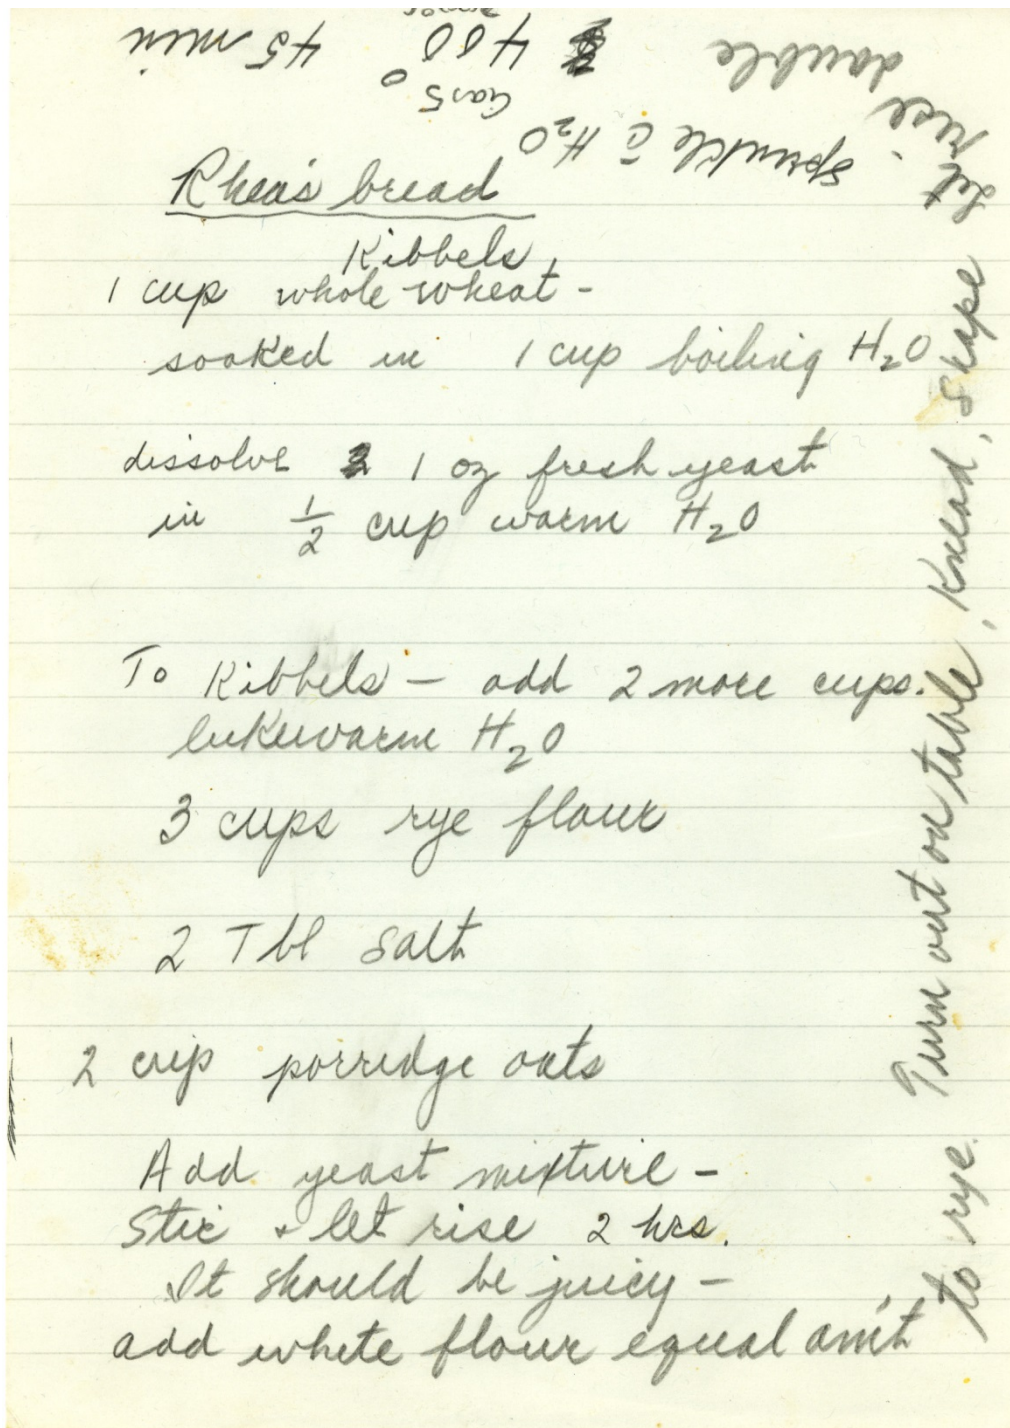 Rhea's bread
Kibbels
1 cup whole wheat -
soaked in 1 cup boiling H₂O
dissolve 1 oz fresh yeast
in ½ cup warm H₂O
To Kibbels - add 2 more cups.
lukewarm H₂O
3 cups rye flour
2 Tbl salt
2 cup porridge oats
Add yeast mixture -
Stir + let rise 2 hrs.
It should be juicy -
add white flour equal am't
to rye. Turn out on table, Knead, shape
Let rise
double
sprinkle c̄ H₂O
Gas 5
400° 45 min